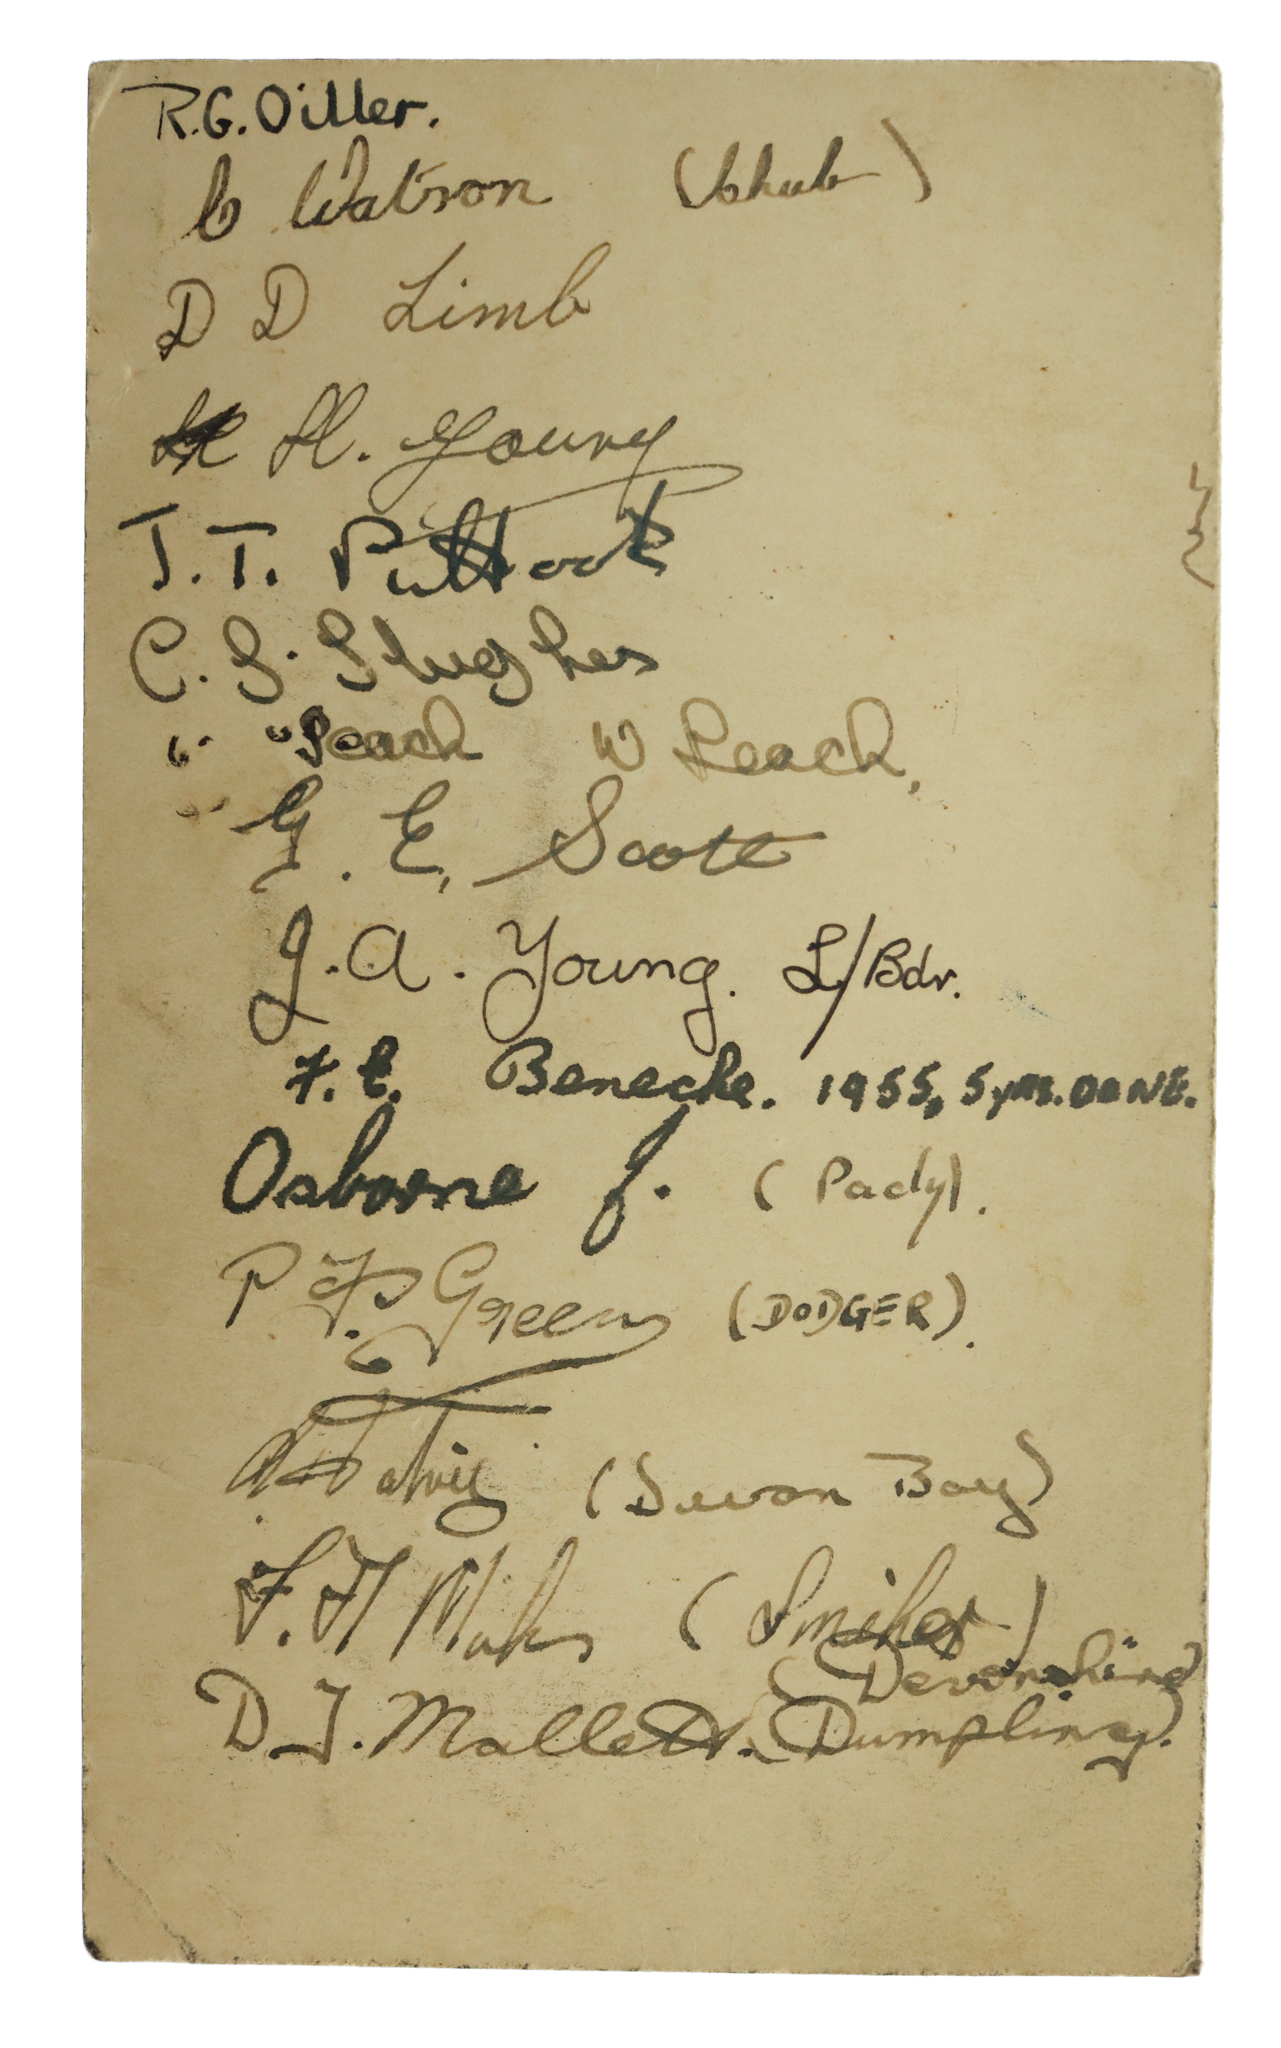 R.G. Oiller.
C Watson (Chub)
D D Limb
H. Young
J.T. Puttock
C. S. Hughes
" " Peach W Leach,
G. E. Scott
J. A. Young. L/Bdr.
F. E. Benecke. 1955, 5 yrs. DONE.
Osborne J. (Pady).
P F Green (DODGER).
(Devon Boy)
F. H (Smiler)
(Devonshire
D. J. Mallett. Dumpling).